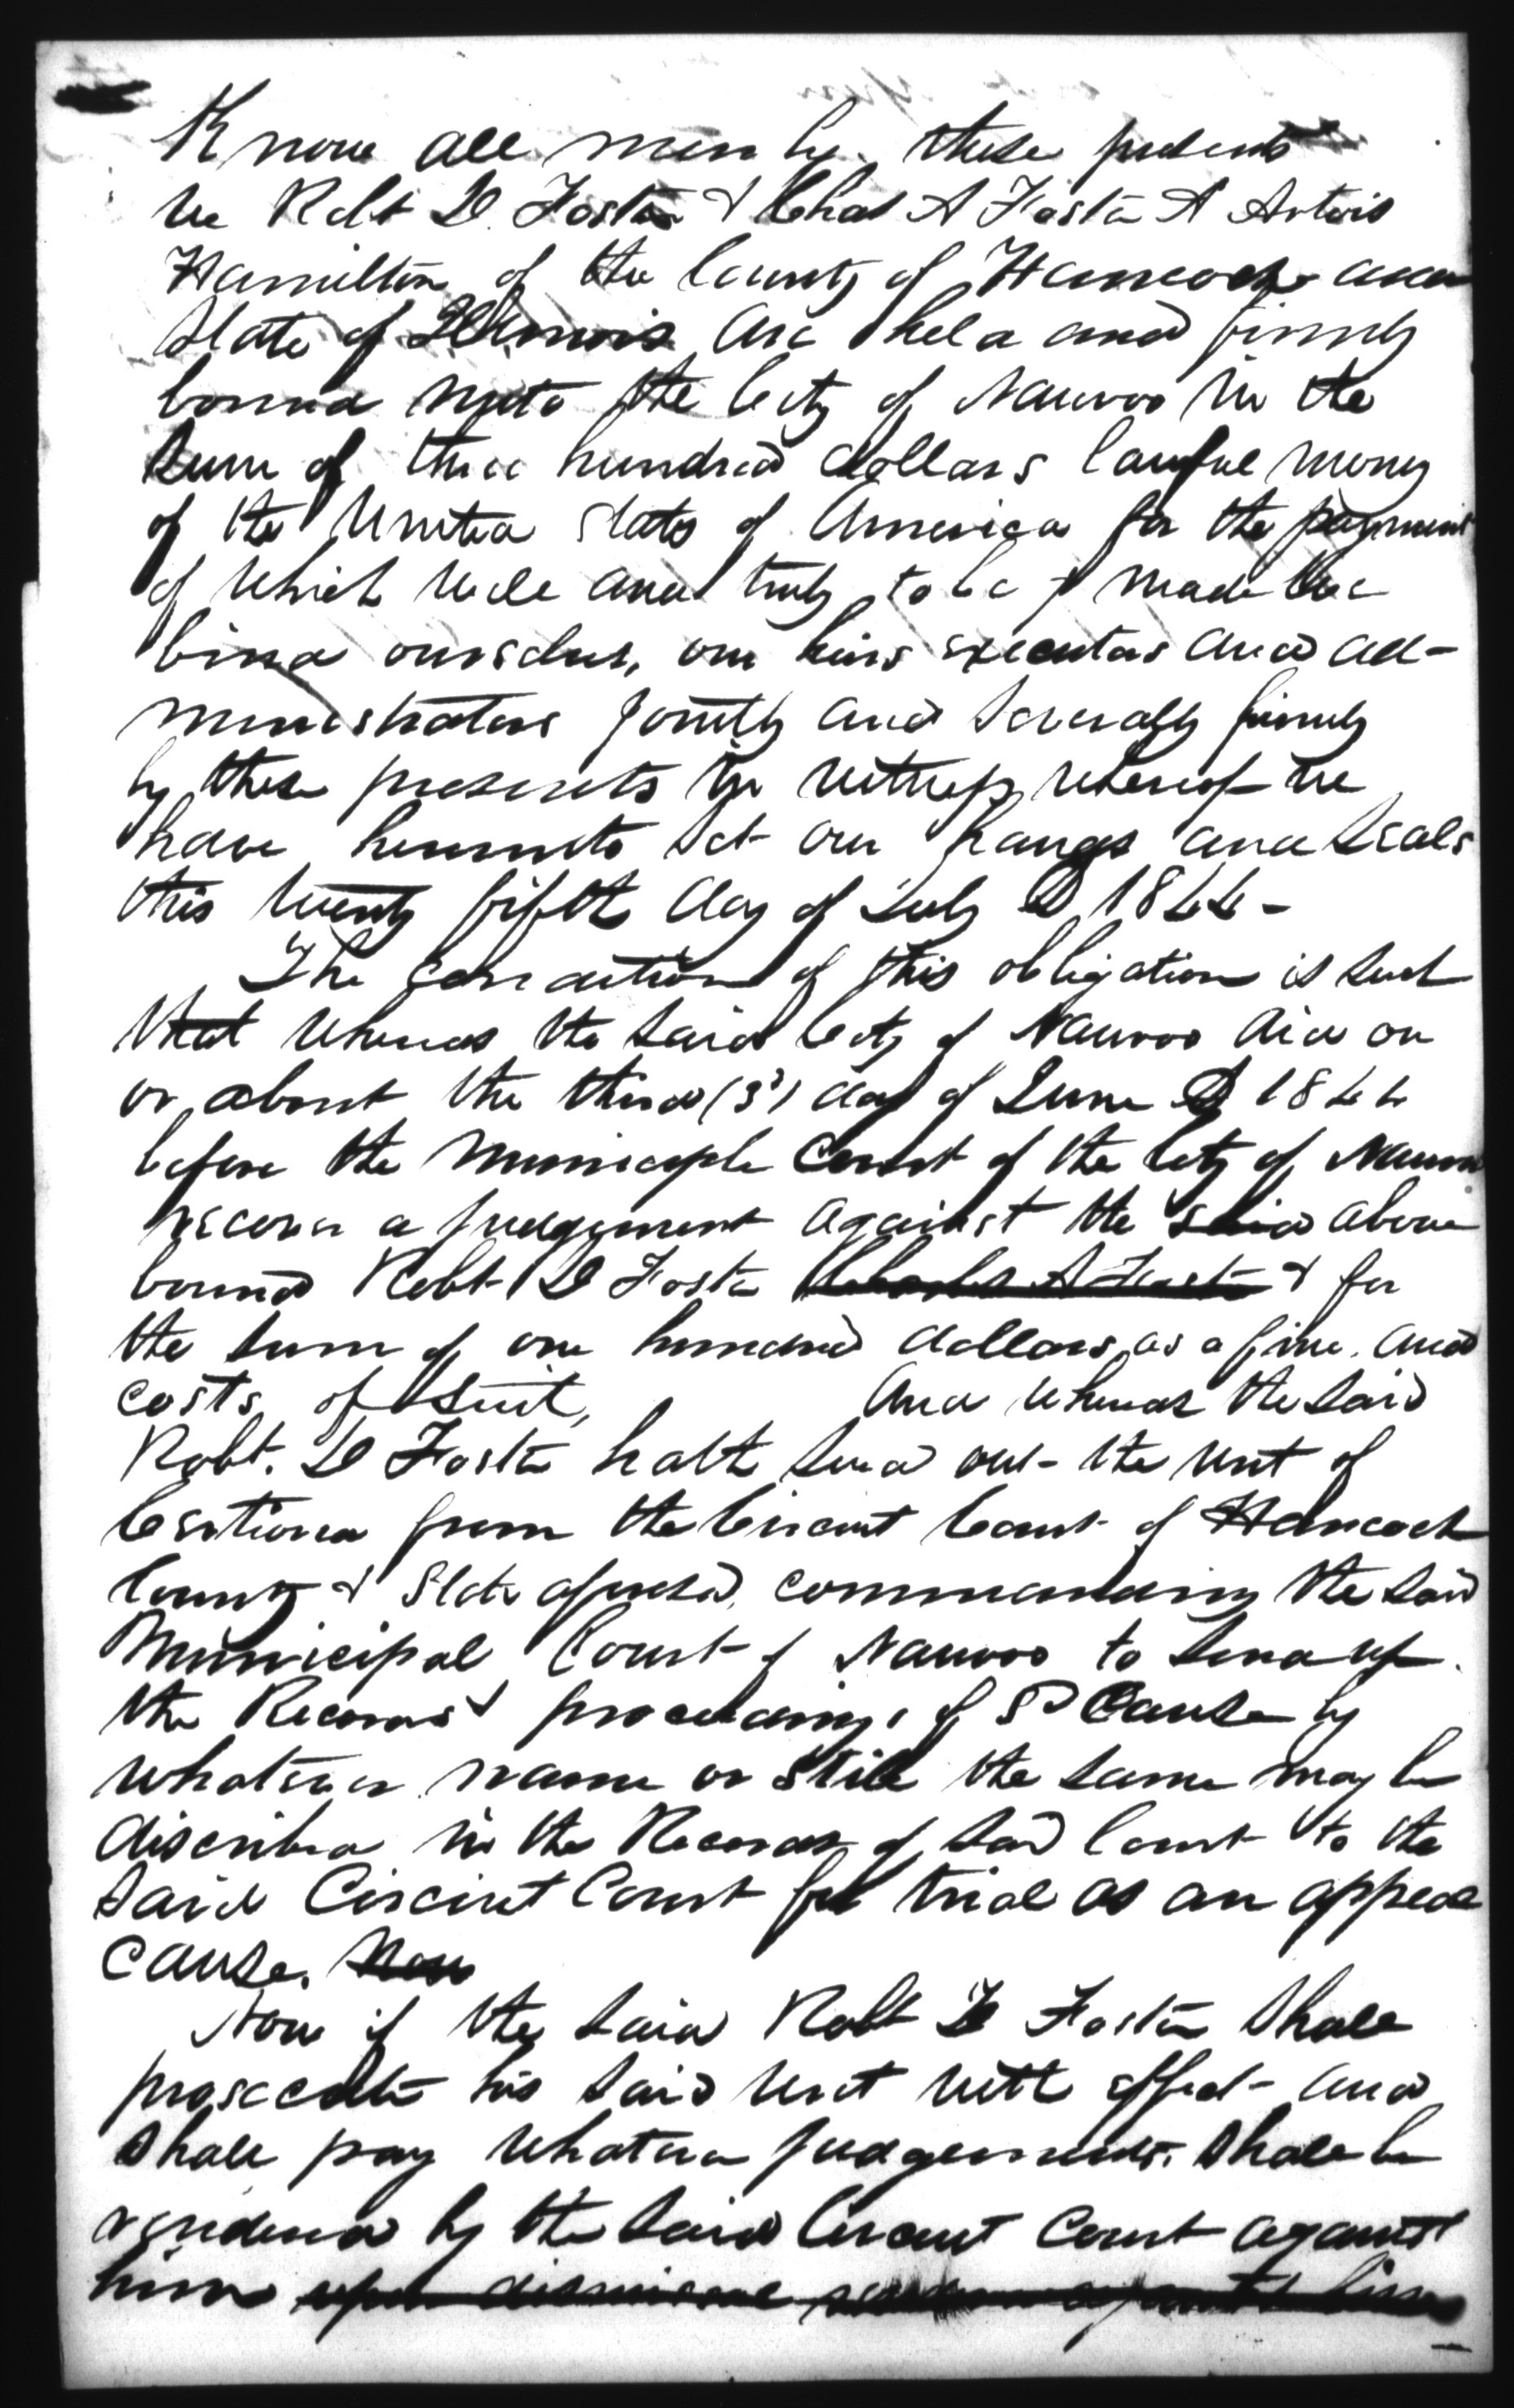 Know all men by these presents
We Robt D. Foster & Chas A Foster & Artois
Hamilton of the County of Hancock and
State of Illinois are held and firmly
bound unto the City of Nauvoo in the
Sum of three hundred dollars lawful money
of the United States of America for the payment
of which well and truly to be made We
bind ourselves, our heirs executors and ad-
ministrators jointly and severally firmly
by these presents In witness whereof we
have hereunto set our hands and Seals
this twenty fifth day of July AD 1844-
The Condition of this obligation is such
that whereas the said City of Nauvoo did on
or about the third (3d) day of June AD 1844
before the Municiple Court of the City of Nauvoo
recover a judgement against the said above
bound Robt D Foster Charles A Foster & for
the sum of one hundred dollars, as a fine, and
costs of Suit, And whereas the said
Robt. D Foster hath sued out the writ of
Certiorea from the Circuit Court of Hancock
County & State aforesd. commanding the said
Municipal Court of Nauvoo to send up
the Records & proceedings of sd Cause by
whatever name or stile the same may be
discribed in the Records of said Court to the
said Circiut Court for trial as an appeal
cause. Now
Now if the said Robt D Foster shall
prosecute his said writ with effect and
shall pay whatever judgements. shall be
rendered by the said Circuit Court against
him upon dismissal against him